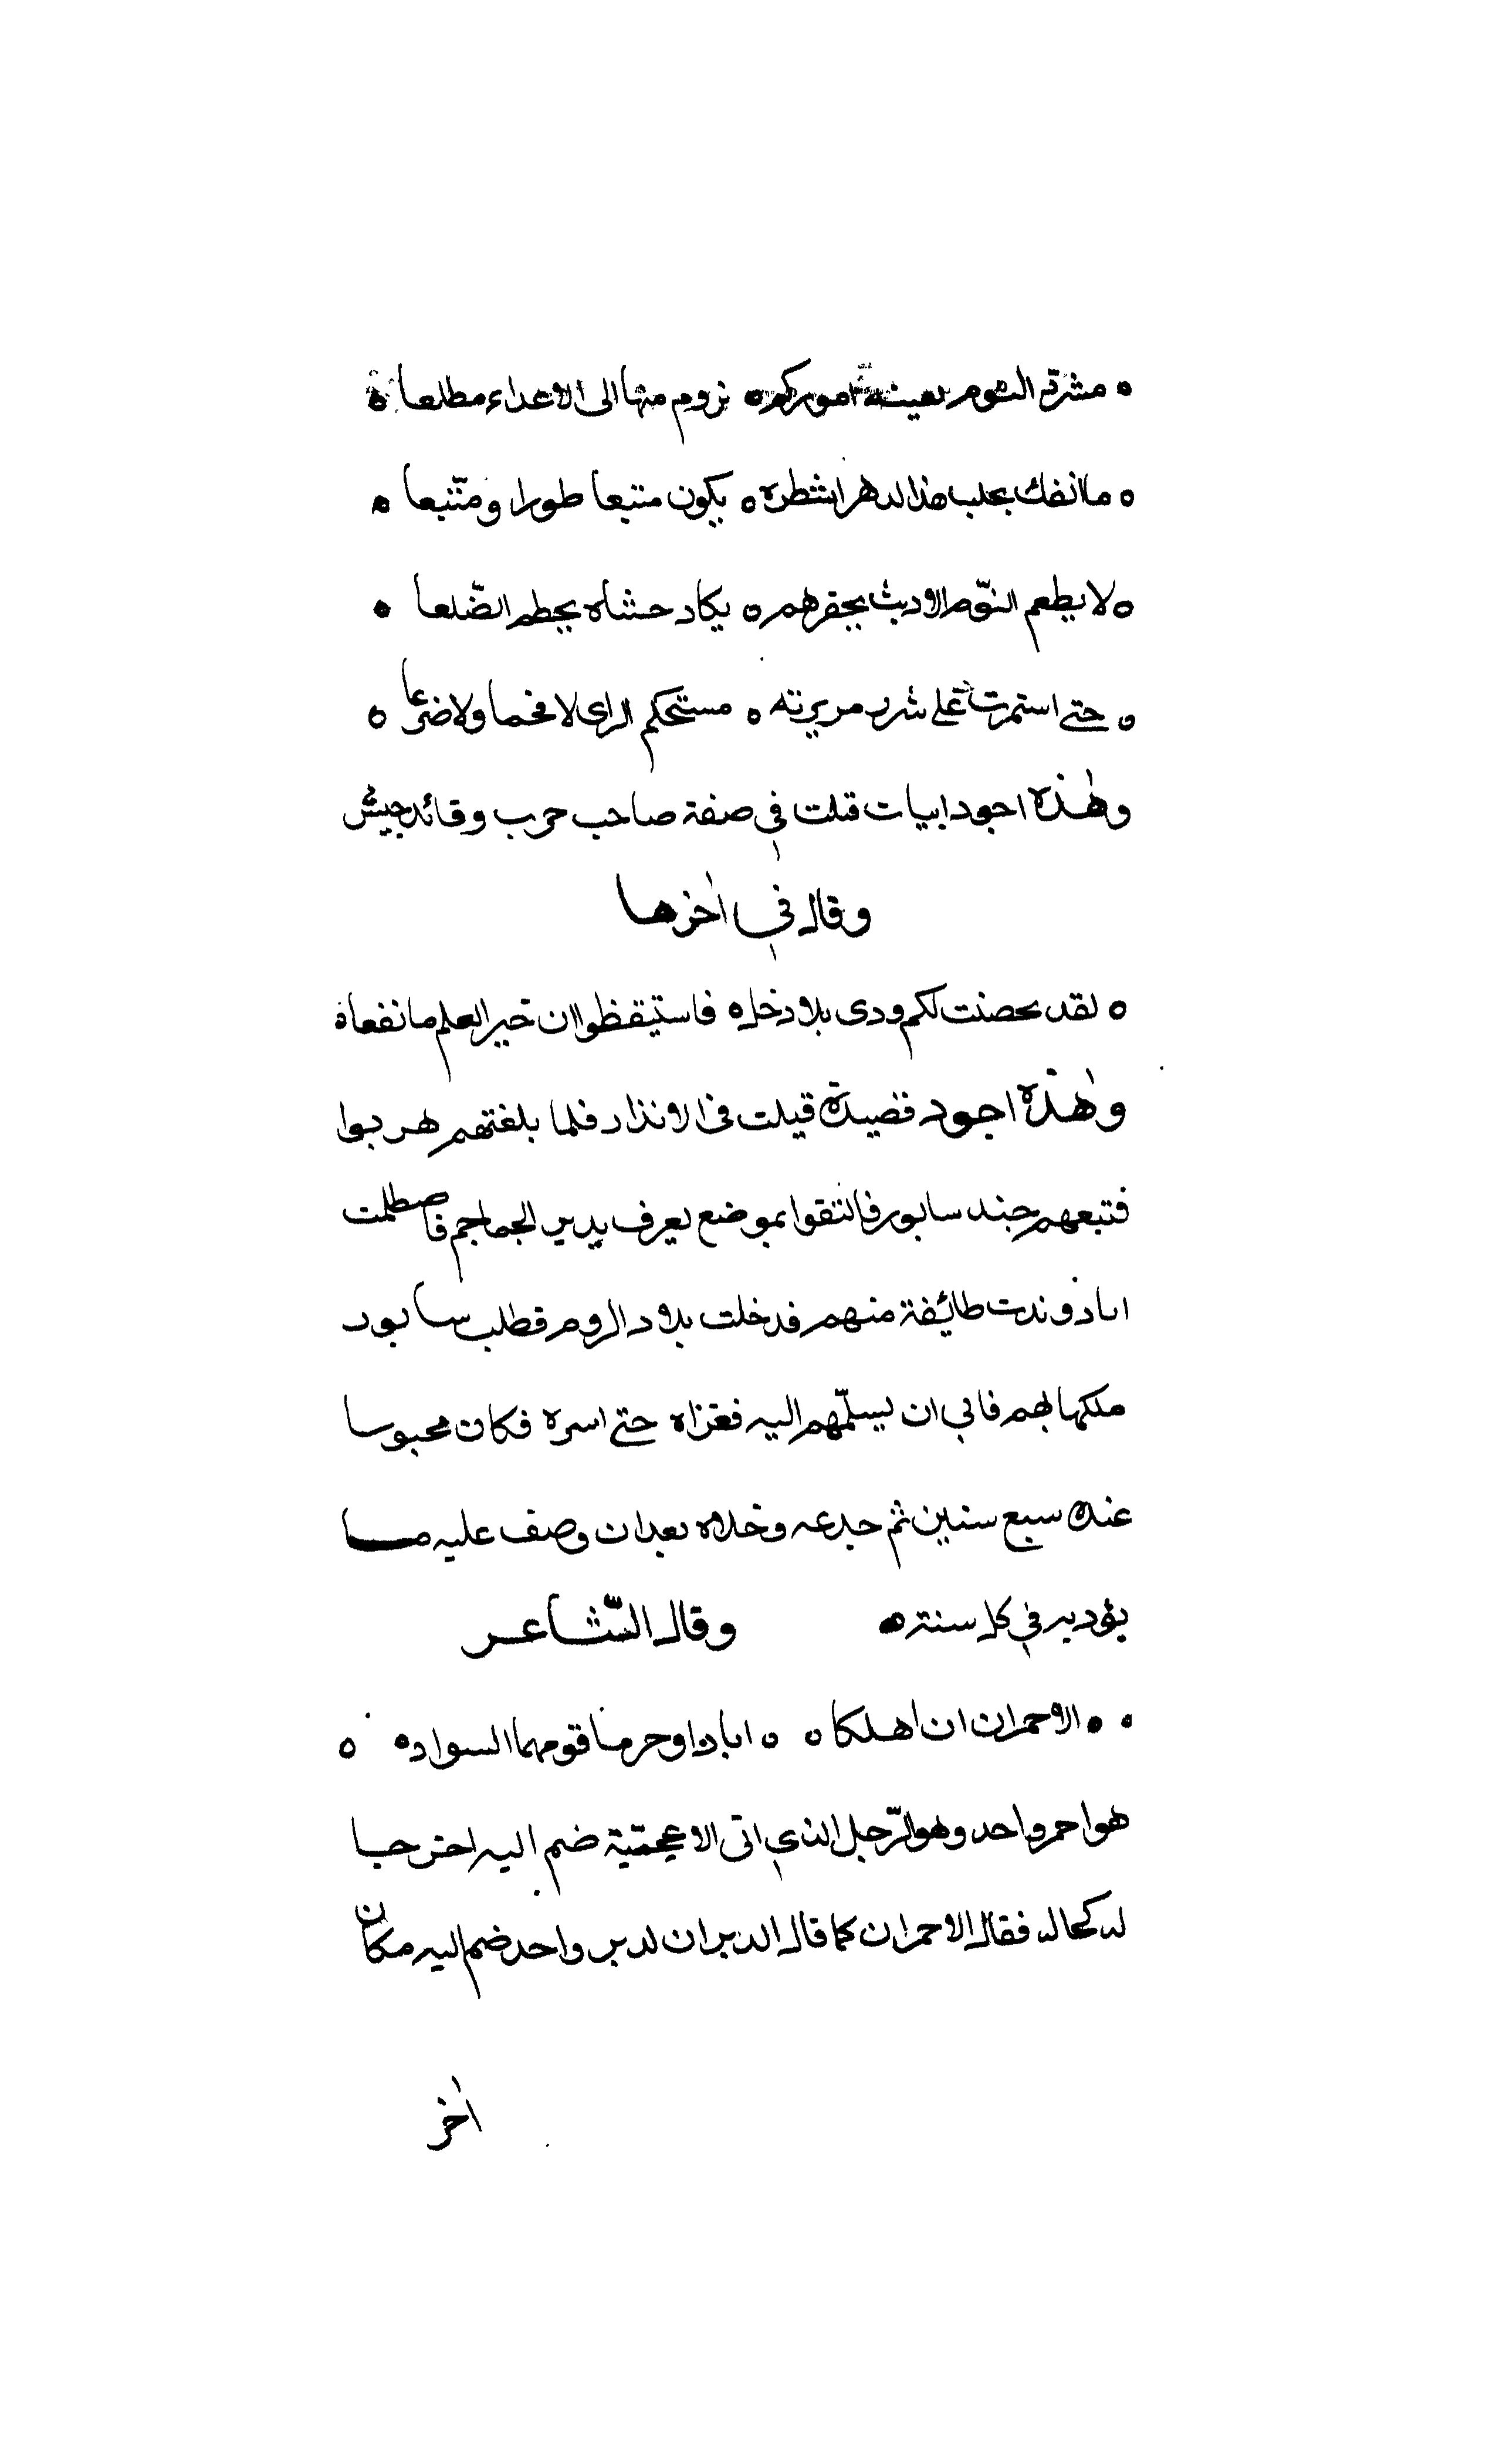 ه مشرد النوم تعينه اموركم ه نروم منها الى الاعداء مطلعا ه
ه ما انفك يحلب هذا الدهر اشطره ه يكون متبعا طورا ومتّبعا ه
ه لا يطعم النوّم الا ريث يحفزهم ه يكاد حشاه يحطم الضّلعا ه
ه حتى استمرت على شزر مريرته ه مستحكم الراى لا فخما ولا ضرعا ه
وهٰذه اجود ابيات قيلت في صفة صاحب حرب وقائد جيش
وقال في اٰخرها
ه لقد محضت لكم ودى بلا دخل ه فاستيقظوا ان خير العلم ما نفعا ه
وهٰذه اجود قصيدة قيلت في الانذار فلما بلغتهم هربوا
فتبعهم جند سابور فالتقوا بموضع يعرف بدير الجماجم فاصطلمت
اياد وندت طائفة منهم فدخلت بلاد الروم فطلب سابور
ملكها بهم فابى ان يسلّمهم اليه فغزاه حتى اسره فكان محبوسا
عنده سبع سنين ثم جدعه وخلاه بعد ان وصف عليه ما
يؤديه في كل سنة ه وقال الشّاعر
ه ه الاحمران اهلكا ه ه ايادا وحرما قومهما السوادا ه ه
هو احمر واحد وهو الرّجل الذي اتى الاعجميّة ضم اليه اخر حبا
له كحاله فقال الاحمران كما قال الدبران لدبر واحد ضم اليه مكان
اٰخر